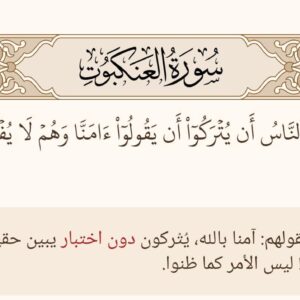 سُورَةُ العَنكَبُوتِ
النَّاسُ أَن يُتْرَكُوٓا۟ أَن يَقُولُوٓا۟ ءَامَنَّا وَهُمْ لَا
قولهم: آمنا بالله، يُتركون دون اختبار يبين
ليس الأمر كما ظنوا.